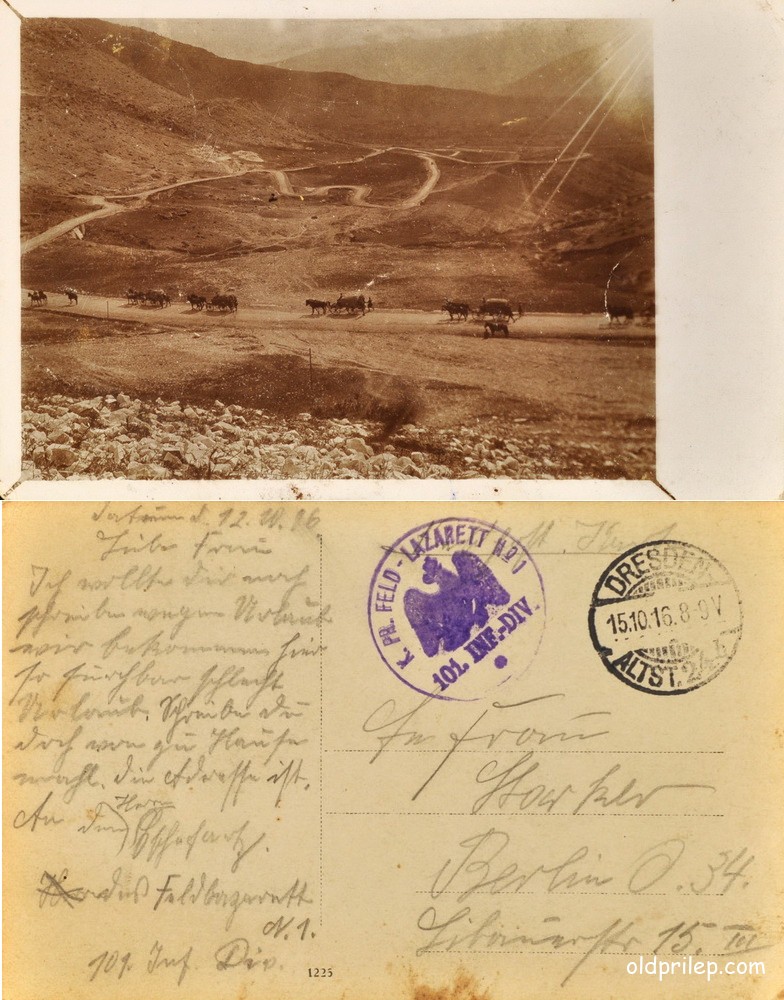 Datum d. 12.10.16
Liebe Frau
Ich wollte dir noch
schreiben wegen Urlaub
wir bekommen hier
so furchbar schlecht
Urlaub. Schreibe du
doch von zu Hause
mahl. die Adresse ist.
An den Herrn
das Feldlazarett
N. 1.
101. Inf Div.
K. PR. FELD-LAZARETT No 1
101. INF.-DIV.
DRESDEN
15.10.16. 8-9V
ALTST. 24
An Frau
Berlin O. 34.
Libauerstr 15. III
1225
oldprilep.com